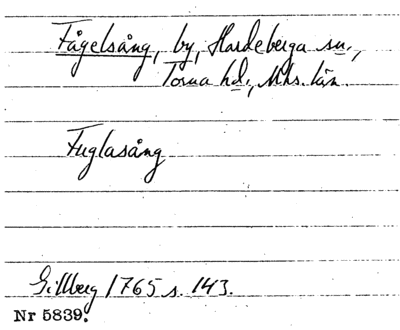 Fågelsång, by, Hardeberga sn.,
Torna hd., Mhs. län.
Fuglasång
Gillberg 1765 s. 143.
Nr 5839.